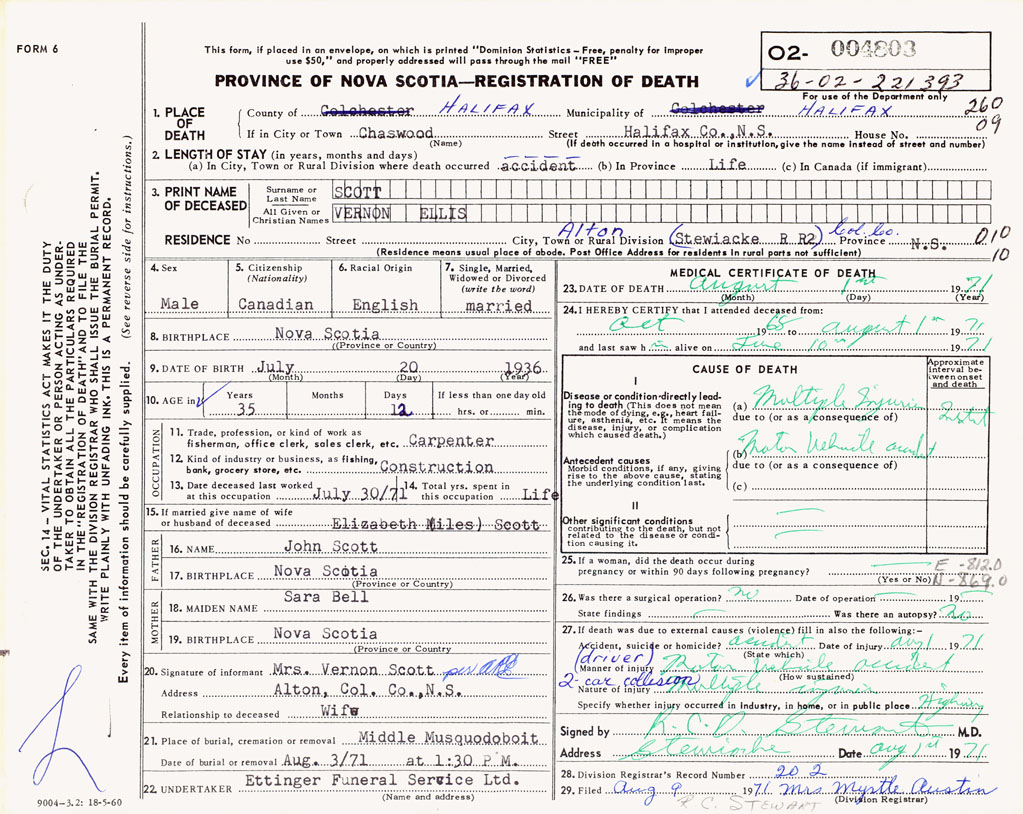 FORM 6
This form, if placed in an envelope, on which is printed "Dominion Statistics – Free, penalty for improper
use $50," and properly addressed will pass through the mail "FREE"
O2- 004803
36-02-221393
For use of the Department only
PROVINCE OF NOVA SCOTIA—REGISTRATION OF DEATH
260
09
1. PLACE OF DEATH
County of Colchester HALIFAX Municipality of Colchester HALIFAX
If in City or Town Chaswood Street Halifax Co.,N.S. House No.
(Name) (If death occurred in a hospital or institution, give the name instead of street and number)
2. LENGTH OF STAY (in years, months and days)
(a) In City, Town or Rural Division where death occurred accident (b) In Province Life (c) In Canada (if immigrant)
3. PRINT NAME OF DECEASED
Surname or Last Name SCOTT
All Given or Christian Names VERNON ELLIS
Alton Col. Co.
RESIDENCE No Street City, Town or Rural Division (Stewiacke R R2) Province N.S. 010
10
(Residence means usual place of abode. Post Office Address for residents in rural parts not sufficient)
4. Sex
Male
5. Citizenship
(Nationality)
Canadian
6. Racial Origin
English
7. Single, Married,
Widowed or Divorced
(write the word)
married
8. BIRTHPLACE Nova Scotia
(Province or Country)
9. DATE OF BIRTH July 20 1936
(Month) (Day) (Year)
10. AGE in Years Months Days If less than one day old
35 12 hrs. or min.
OCCUPATION
11. Trade, profession, or kind of work as
fisherman, office clerk, sales clerk, etc. Carpenter
12. Kind of industry or business, as fishing,
bank, grocery store, etc. Construction
13. Date deceased last worked
at this occupation July 30/71
14. Total yrs. spent in
this occupation Life
15. If married give name of wife
or husband of deceased Elizabeth (Miles) Scott
FATHER
16. NAME John Scott
17. BIRTHPLACE Nova Scotia
(Province or Country)
MOTHER
18. MAIDEN NAME Sara Bell
19. BIRTHPLACE Nova Scotia
(Province or Country)
20. Signature of informant Mrs. Vernon Scott
Address Alton, Col. Co.,N.S.
Relationship to deceased Wife
21. Place of burial, cremation or removal Middle Musquodoboit
Date of burial or removal Aug. 3/71 at 1:30 P.M.
22. UNDERTAKER Ettinger Funeral Service Ltd.
(Name and address)
MEDICAL CERTIFICATE OF DEATH
23. DATE OF DEATH August 1st 1971
(Month) (Day) (Year)
24. I HEREBY CERTIFY that I attended deceased from:
Oct 1968 to August 1st 1971
and last saw him alive on June 10th 1971
CAUSE OF DEATH
Approximate
interval be-
tween onset
and death
I
Disease or condition directly lead-
ing to death (This does not mean
the mode of dying, e.g., heart fail-
ure, asthenia, etc. It means the
disease, injury, or complication
which caused death.)
(a) Multiple Injuries Instant
due to (or as a consequence of)
Antecedent causes
Morbid conditions, if any, giving
rise to the above cause, stating
the underlying condition last.
(b) Motor Vehicle accident
due to (or as a consequence of)
(c)
II
Other significant conditions
contributing to the death, but not
related to the disease or condi-
tion causing it.
25. If a woman, did the death occur during
pregnancy or within 90 days following pregnancy?
(Yes or No)
E-812.0
N-869.0
26. Was there a surgical operation? no Date of operation 19
State findings Was there an autopsy? No
27. If death was due to external causes (violence) fill in also the following:–
Accident, suicide or homicide? accident Date of injury aug 1 1971
(State which)
(driver)
Manner of injury Motor Vehicle accident
(How sustained)
2-car collision
Nature of injury Multiple injuries
Specify whether injury occurred in industry, in home, or in public place Highway
Signed by R.C.D. Stewart M.D.
Address Stewiacke Date aug 1st 1971
28. Division Registrar's Record Number 202
29. Filed Aug 9 1971 Mrs Myrtle Austin
(Division Registrar)
R.C. STEWART
SEC. 14 – VITAL STATISTICS ACT MAKES IT THE DUTY
OF THE UNDERTAKER OR PERSON ACTING AS UNDER-
TAKER TO OBTAIN ALL THE PARTICULARS REQUIRED
IN THE "REGISTRATION OF DEATH" AND TO FILE THE
SAME WITH THE DIVISION REGISTRAR WHO SHALL ISSUE THE BURIAL PERMIT.
WRITE PLAINLY WITH UNFADING INK. THIS IS A PERMANENT RECORD.
Every item of information should be carefully supplied. (See reverse side for instructions.)
9004–3.2: 18-5-60